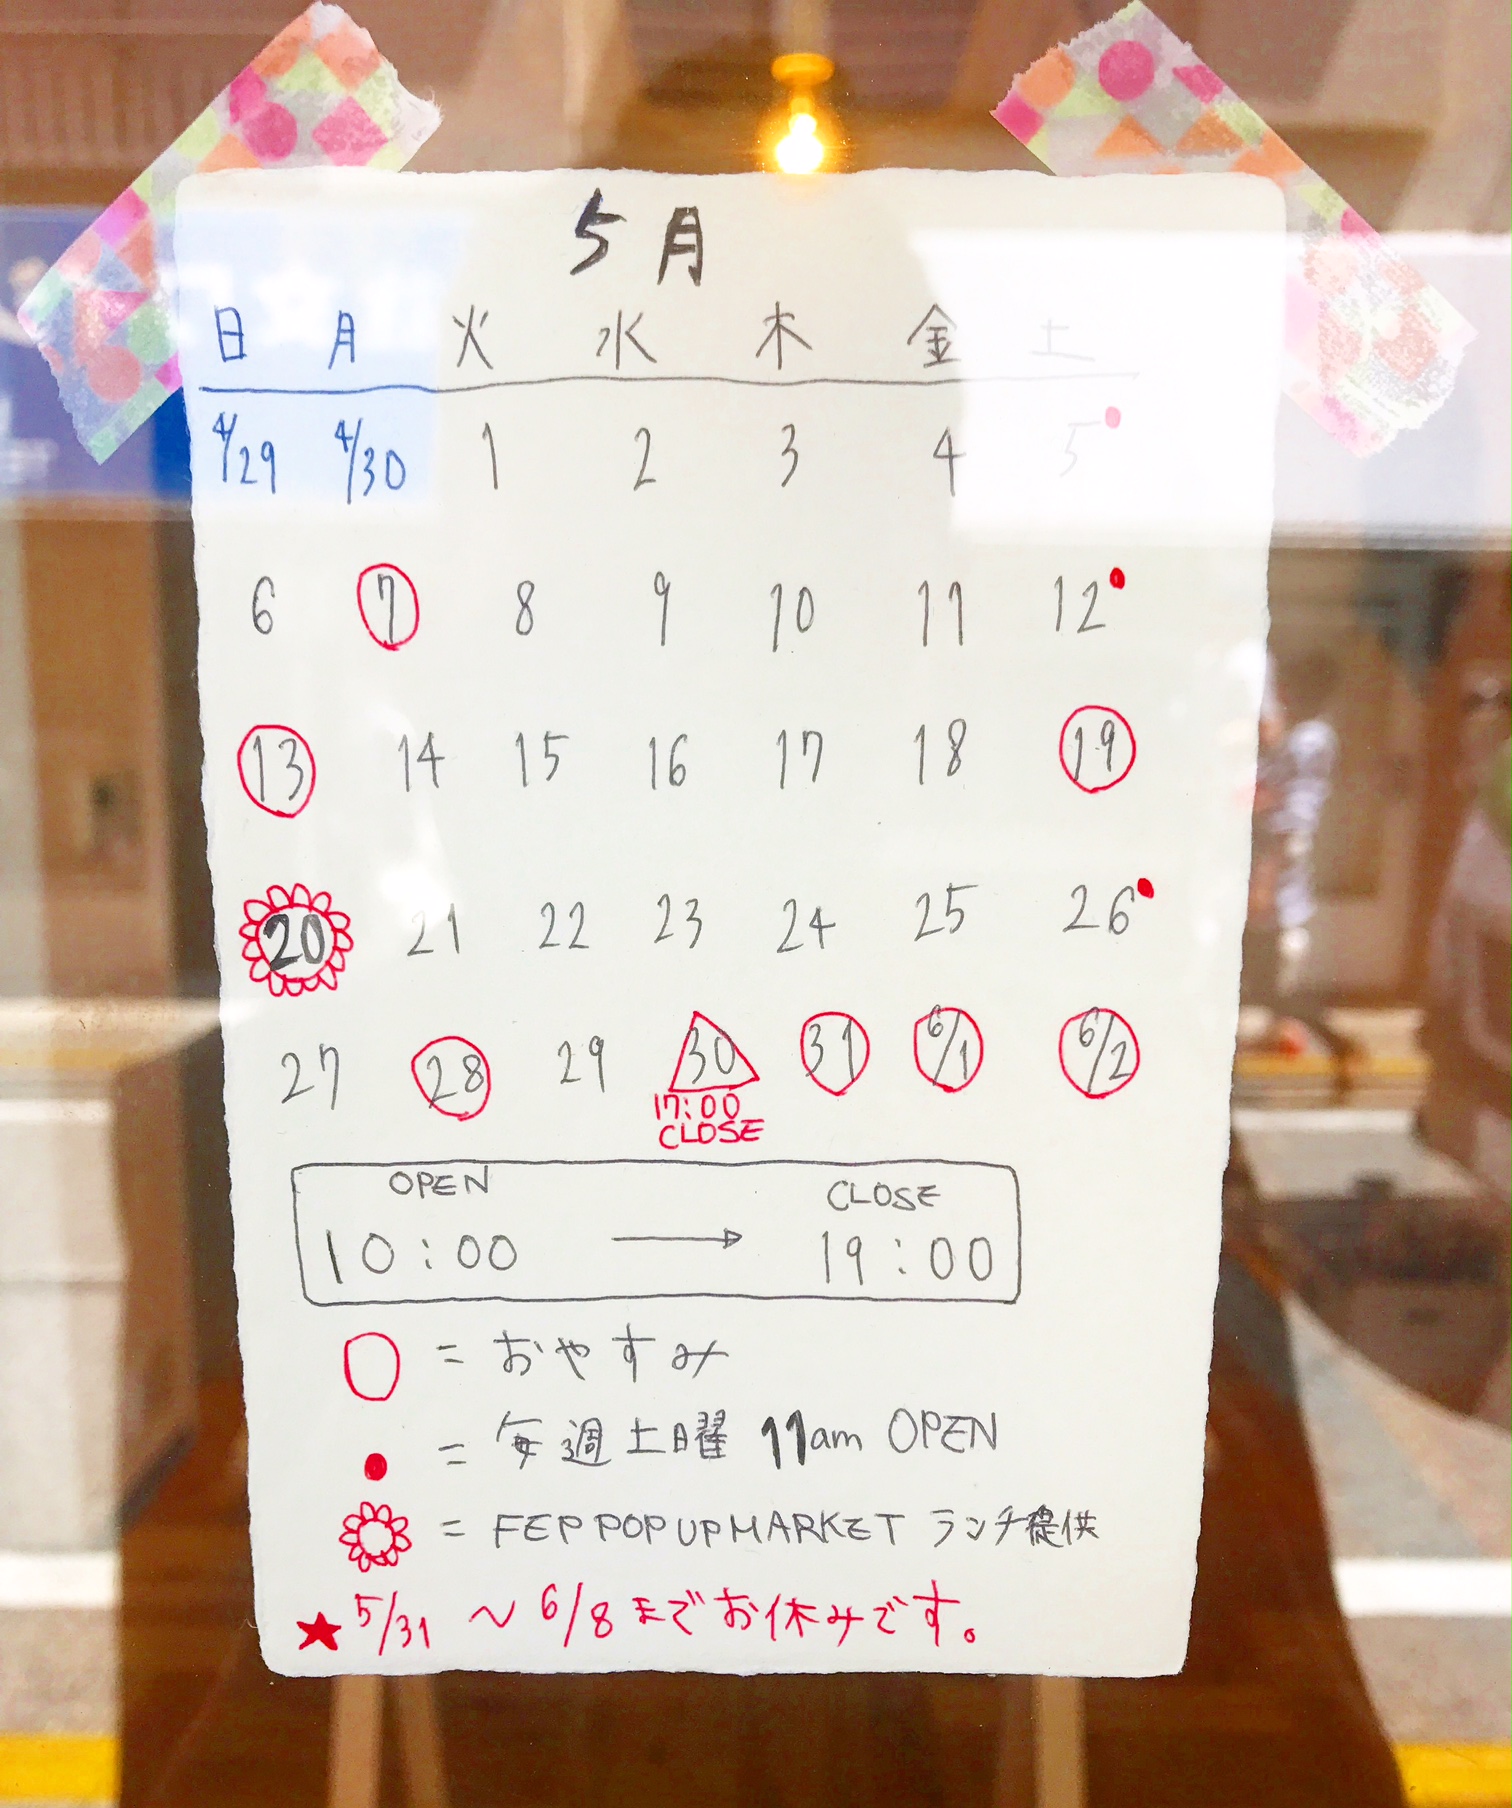 5月
日 月 火 水 木 金 土
4/29 4/30 1 2 3 4 5
6 7 8 9 10 11 12
13 14 15 16 17 18 19
20 21 22 23 24 25 26
27 28 29 30 31 6/1 6/2
17:00
CLOSE
OPEN CLOSE
10:00 → 19:00
= おやすみ
= 毎週土曜 11am OPEN
= FEP POP UP MARKET ランチ提供
★ 5/31 〜 6/8までお休みです。